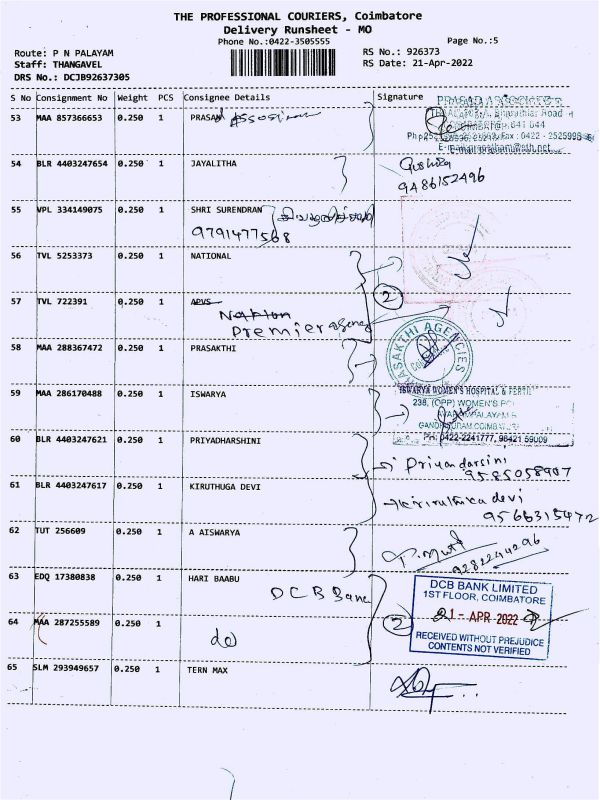 THE PROFESSIONAL COURIERS, Coimbatore
Delivery Runsheet - MO
Phone No.:0422-3505555
Page No.:5
Route: P N PALAYAM
RS No.: 926373
Staff: THANGAVEL
RS Date: 21-Apr-2022
DRS No.: DCJB92637305
S No Consignment No Weight PCS Consignee Details Signature
PRASAD ASSOCIATES
53 MAA 857366653 0.250 1 PRASAN
54 BLR 4403247654 0.250 1 JAYALITHA
9486152496
55 VPL 334149075 0.250 1 SHRI SURENDRAN
9791477568
56 TVL 5253373 0.250 1 NATIONAL
2
57 TVL 722391 0.250 1 APVS
Nation
Premier agency
58 MAA 288367472 0.250 1 PRASAKTHI
PRASAKTHI AGENCIES
59 MAA 286170488 0.250 1 ISWARYA
ISWARYA WOMEN'S HOSPITAL & FERTIL
238, (OPP) WOMEN'S
PH: 0422-2241777, 98421 59009
60 BLR 4403247621 0.250 1 PRIYADHARSHINI
Priyadarsini
9585058907
61 BLR 4403247617 0.250 1 KIRUTHUGA DEVI
Kiruthika devi
9566315472
62 TUT 256609 0.250 1 A AISWARYA
9282244296
63 EDQ 17380838 0.250 1 HARI BAABU
DCB Bank
DCB BANK LIMITED
1ST FLOOR, COIMBATORE
21 - APR 2022
RECEIVED WITHOUT PREJUDICE
CONTENTS NOT VERIFIED
64 MAA 287255589 0.250 1
do
2
65 SLM 293949657 0.250 1 TERN MAX